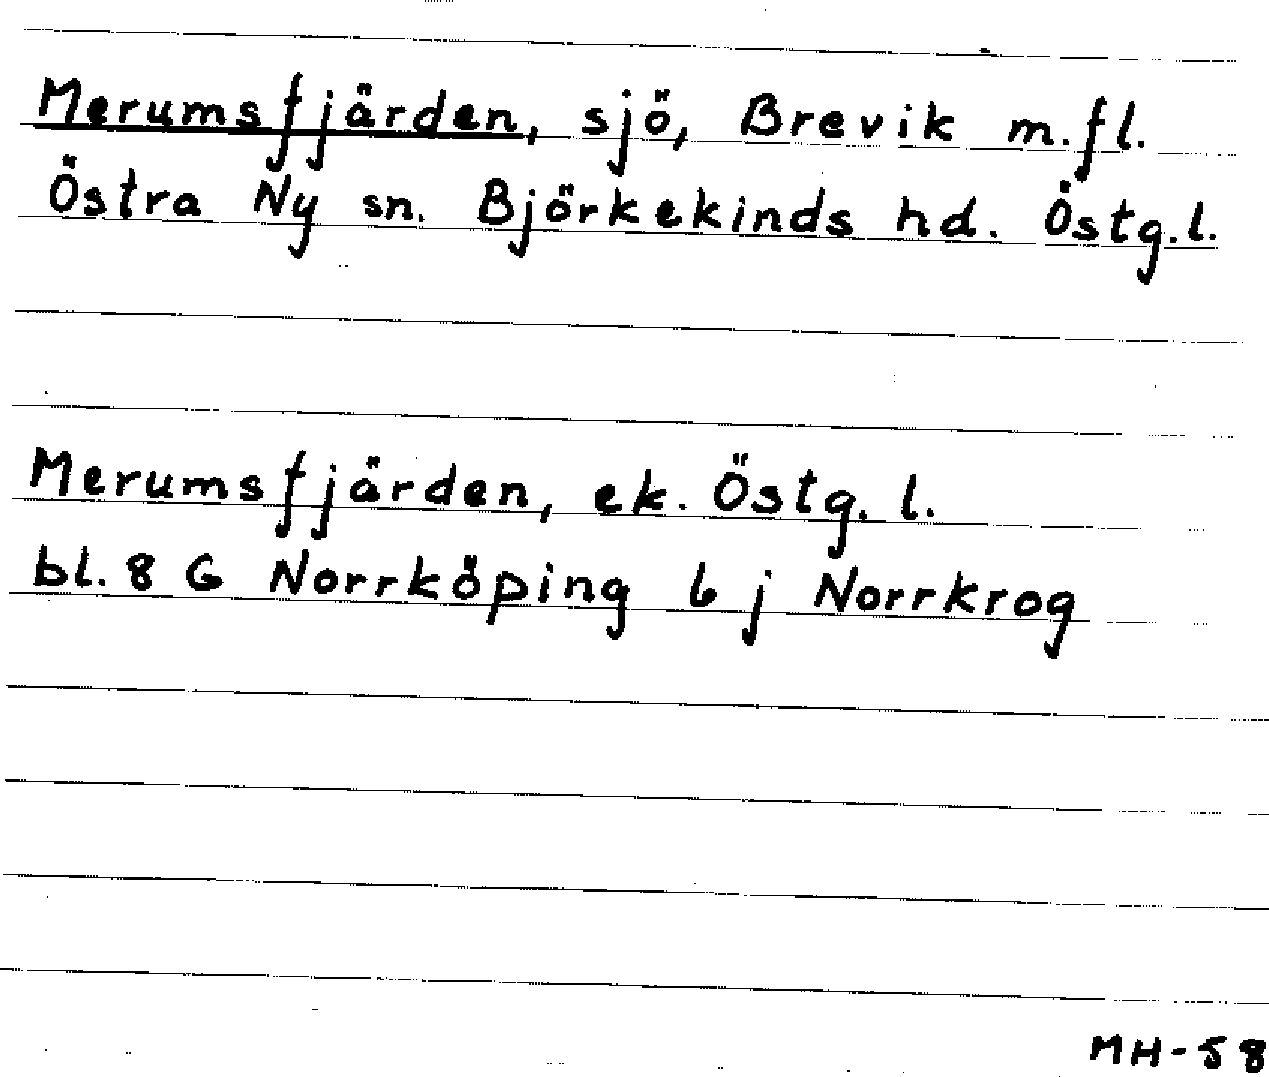 Merumsfjärden, sjö, Brevik m.fl.
Östra Ny sn. Björkekinds hd. Östg.l.
Merumsfjärden, ek. Östg. l.
bl. 8 G Norrköping 6 j Norrkrog
MH-58